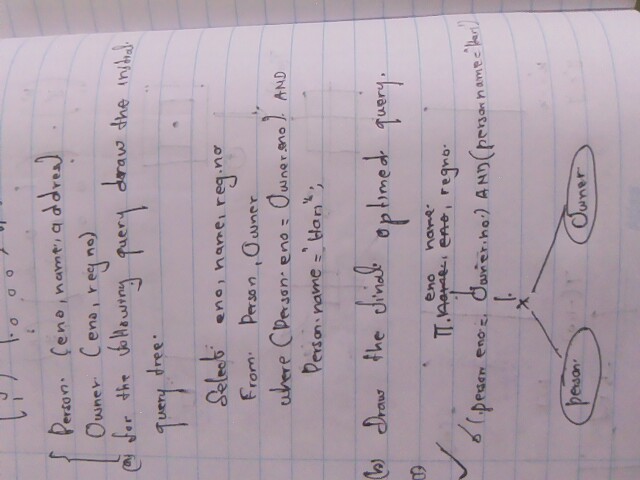 Person. (eno, name, address)
Owner (eno, regno)
(a) for the following query draw the initial
query tree.
Select eno, name, reg.no
From Person, Owner
where (Person. eno = Owner.eno) AND
Person.name = "Hari";
(b) Draw the final optimed query.
eno name.
π. name, eno, regno.
σ (.person eno = Owner.no.) AND (person name = "Hari)
X
person.
Owner